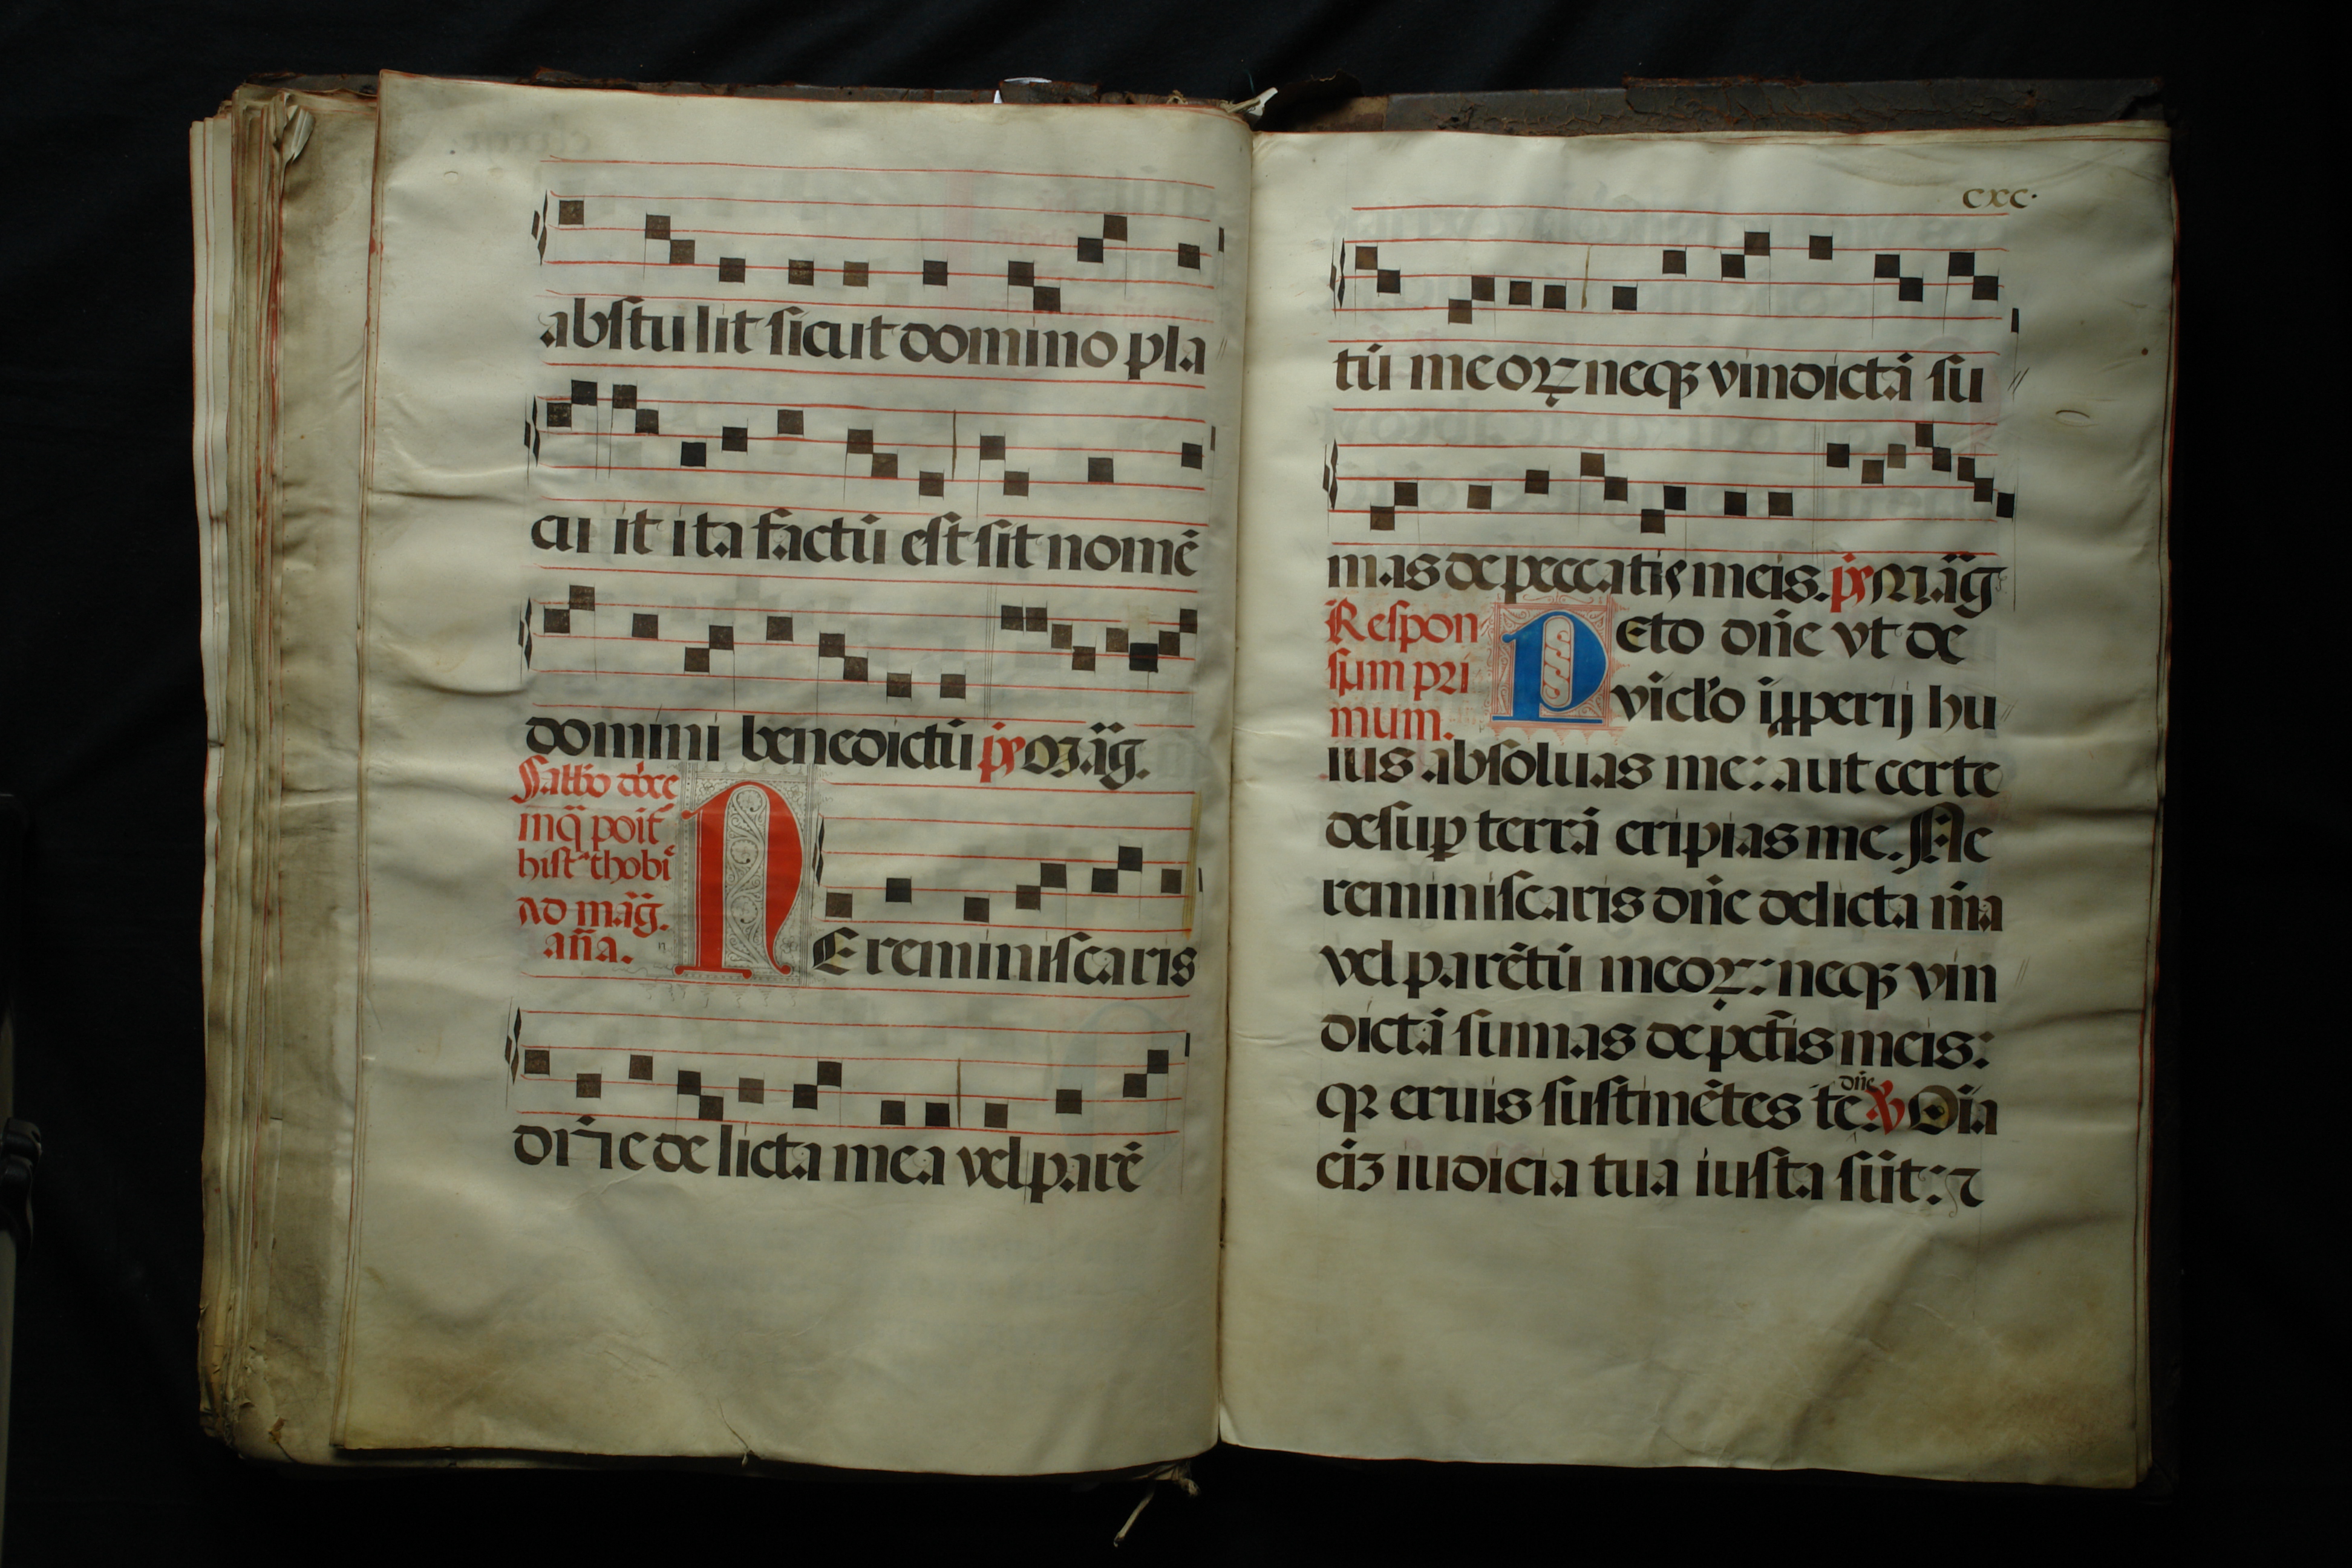 abstulit sicut domino pla
cuit ita factū est sit nomē
domini benedictū ps Māg.
Sabbo
poit
hist thobi
ad māg.
aña.
NE reminiscaris
dñe delicta mea vel parē
cxc.
tū meoꝝ neqꝫ vindictā su
mas de peccatis meis. ps Māg
Respon
sum pri
mum.
PEto dñe vt de
viclo īpperij hu
ius absoluas me: aut certe
desuꝑ terrā eripias me. Ne
reminiscaris dñe delicta m̄a
vel parētū meoꝝ: neqꝫ vin
dictā sumas de pctīs meis:
qꝛ eruis sustinētes te dñe. ℣ Oīa
eīꝫ iudicia tua iusta sūt: ⁊